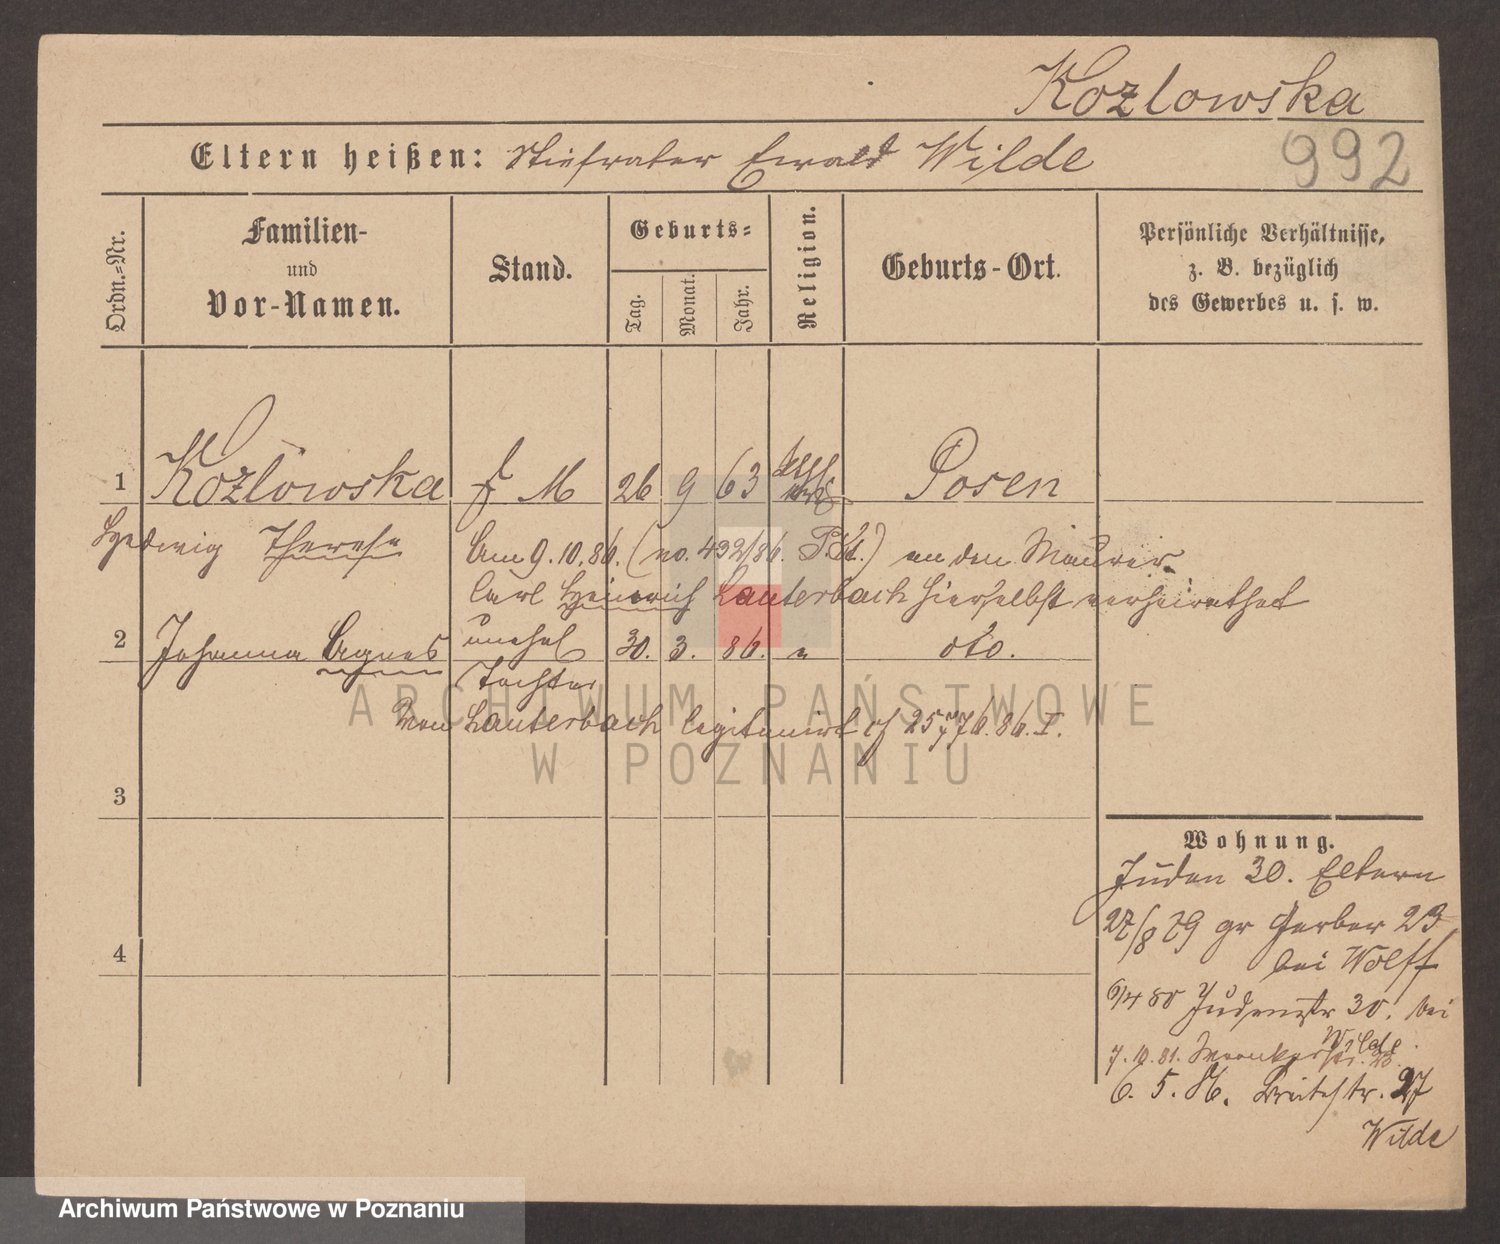 Kozlowska
Eltern heißen: Stiefvater Ewald Wilde
992
Ordn.-Nr.
Familien-
und
Vor-Namen.
Stand.
Geburts-
Tag.
Monat.
Jahr.
Religion.
Geburts-Ort.
Persönliche Verhältnisse,
z. B. bezüglich
des Gewerbes u. s. w.
1 Kozlowska M 26 9 63 Posen
Hedwig Therese
Am 9.10.86. (no. 432/86. P.St.) an den Maurer
Carl Heinrich Lauterbach hierselbst verheirathet
2 Johanna Agnes unehel 30. 3. 86. " dto.
Tochter
Von Lauterbach legitimirt cf 2577/6.86.I.
3
4
Wohnung.
Juden 30. Eltern
27/8 79 gr Gerber 23
bei Wolff
6/4 80 Judenstr 30. bei
Wilde
7.10.81. Wronkerstr.
6. 5. 86. Breitestr. 27
Wilde
ARCHIWUM PAŃSTWOWE
W POZNANIU
Archiwum Państwowe w Poznaniu